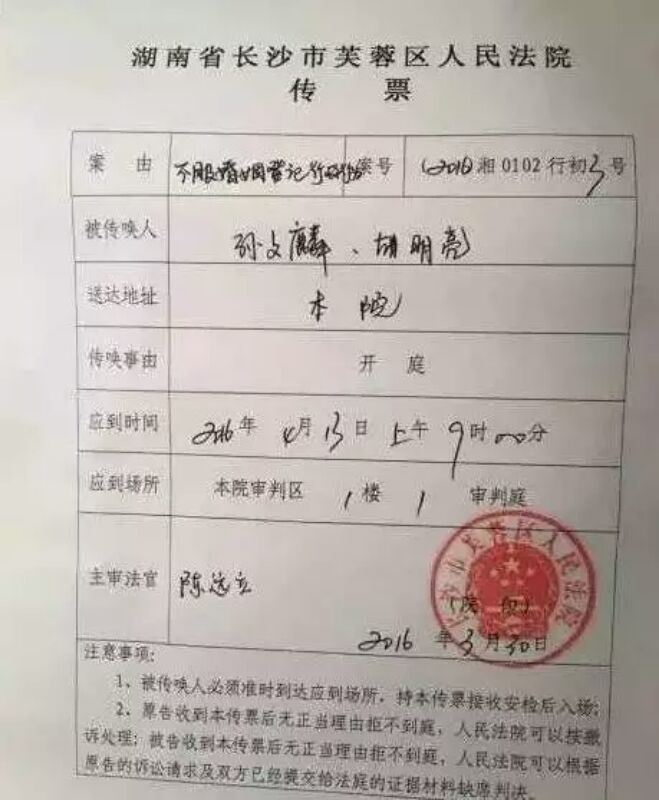 湖南省长沙市芙蓉区人民法院
传 票
案 由 不服婚姻登记行政行为 案号 (2016)湘0102行初3号
被传唤人 孙文麟、胡明亮
送达地址 本院
传唤事由 开 庭
应到时间 2016年4月13日上午9时00分
应到场所 本院审判区1楼1审判庭
主审法官 陈远立
长沙市芙蓉区人民法院
(院 印)
2016年3月30日
注意事项:
1、被传唤人必须准时到达应到场所,持本传票接收安检后入场;
2、原告收到本传票后无正当理由拒不到庭,人民法院可以按撤
诉处理;被告收到本传票后无正当理由拒不到庭,人民法院可以根据
原告的诉讼请求及双方已经提交给法庭的证据材料缺席判决。